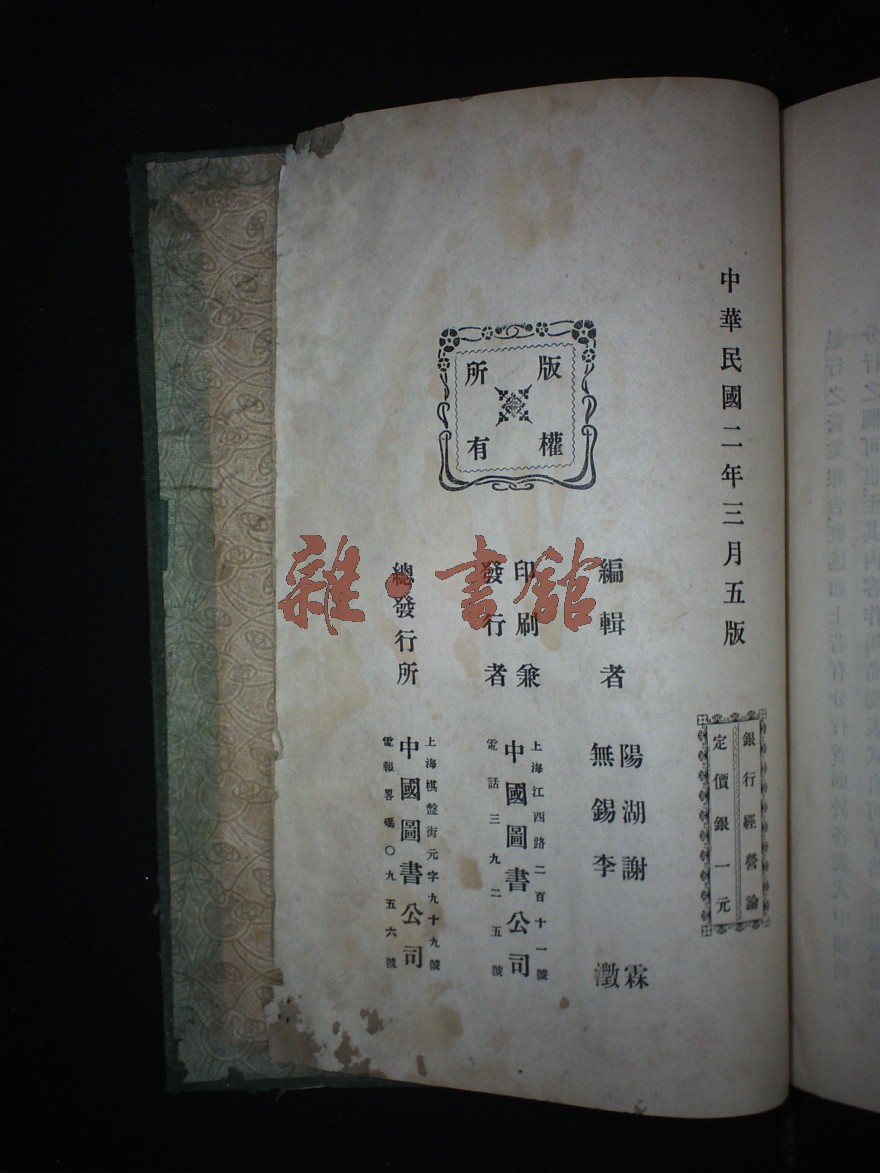 中華民國二年三月五版
銀行經營論
定價銀一元
版權
所有
編輯者
陽湖謝霖
無錫李澂
印刷兼
發行者
上海江西路二百十一號
中國圖書公司
電話三九二五號
總發行所
上海棋盤街元字九十九號
中國圖書公司
電報畧碼〇九五六號
雜·書館